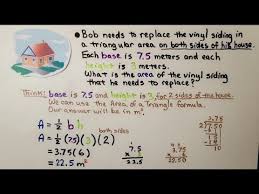 Bob needs to replace the vinyl siding in
a triangular area on both sides of his house.
Each base is 7.5 meters and each
height is 3 meters.
What is the area of the vinyl siding
that he needs to replace?
Think! base is 7.5 and height is 3, for 2 sides of the house.
We can use the Area of a Triangle formula.
Our answer will be in m².
A = 1/2 b h
both sides
A = 1/2 (7.5)(3)(2)
= 3.75(6)
= 22.5 m²
3.75
x 6
22.5
3.75
2 7.50